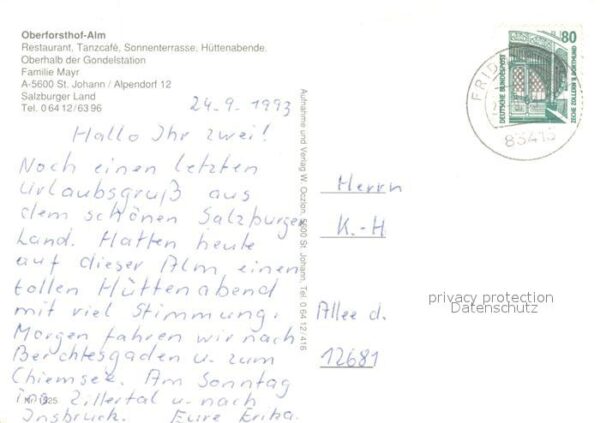 Oberforsthof-Alm
Restaurant, Tanzcafé, Sonnenterrasse, Hüttenabende.
Oberhalb der Gondelstation
Familie Mayr
A-5600 St. Johann / Alpendorf 12
Salzburger Land
Tel. 0 64 12/63 96
24.9.1993
Hallo Ihr zwei!
Noch einen letzten
Urlaubsgruß aus
dem schönen Salzburger
Land. Hatten heute
auf dieser Alm einen
tollen Hüttenabend
mit viel Stimmung.
Morgen fahren wir nach
Berchtesgaden u. zum
Chiemsee. Am Sonntag
ins Zillertal u. nach
Insbruck. Eure Erika.
Aufnahme und Verlag W. Oczlon, 5600 St. Johann, Tel. 0 64 12/416
80
DEUTSCHE BUNDESPOST
ZECHE ZOLLERN II, DORTMUND
83413
Herrn
K.-H
Allee d.
12681
privacy protection
Datenschutz